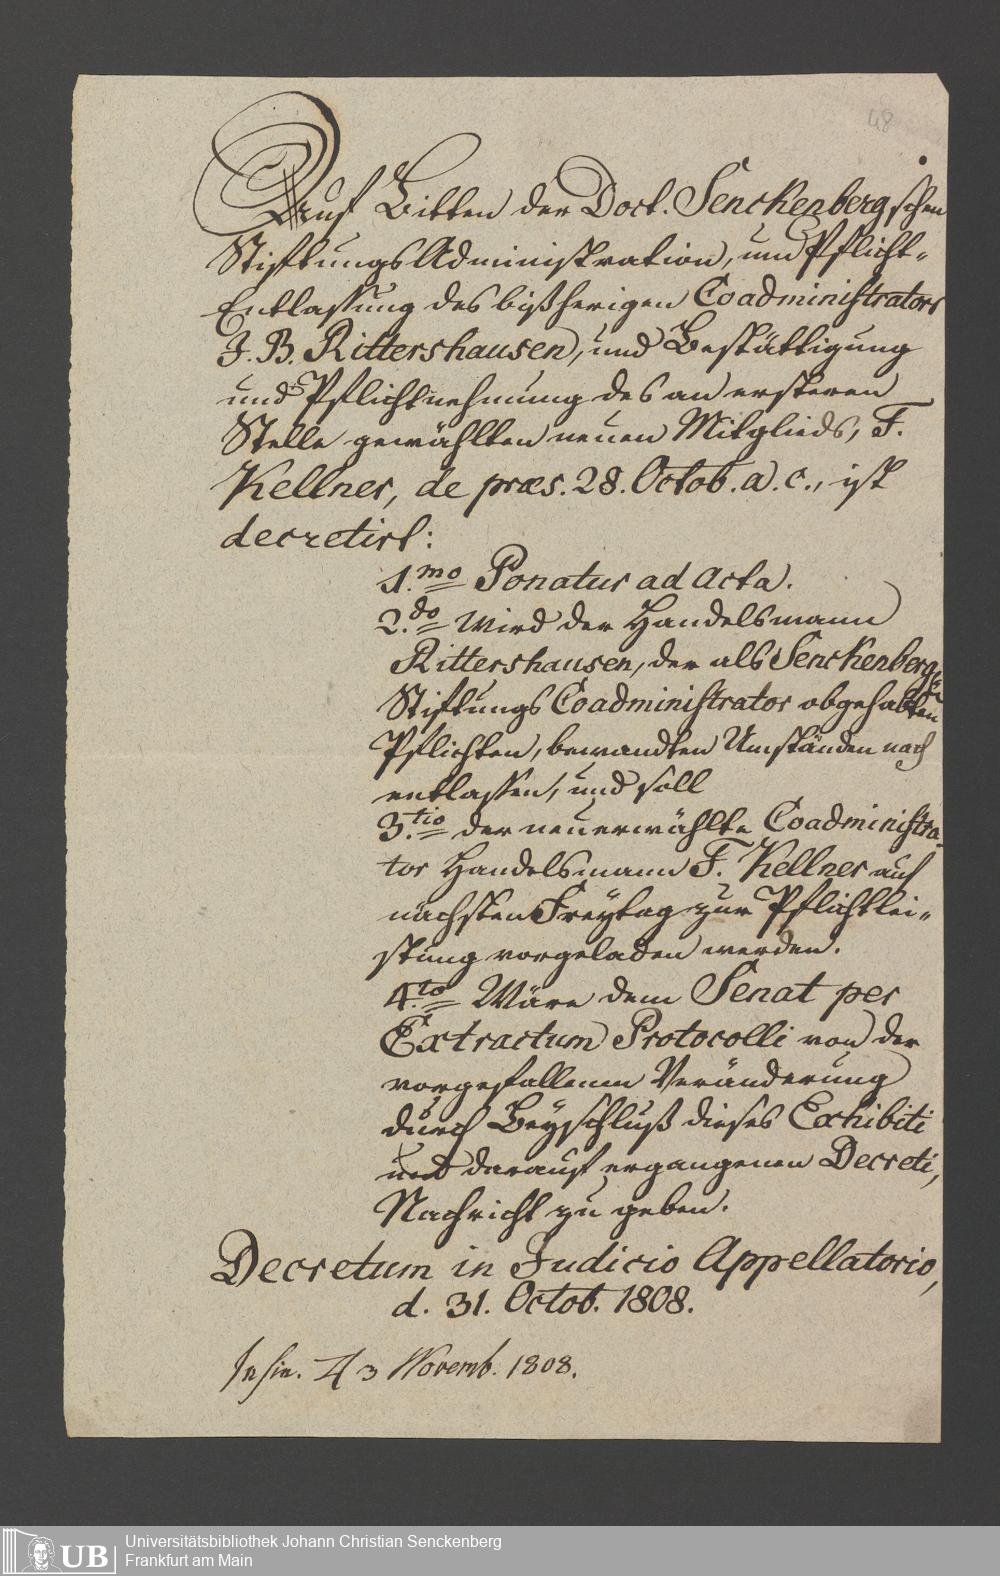 48
Auf Bitten der Doct. Senckenbergschen
Stiftungs Administration, um Pflicht-
Entlassung des bißherigen Coadministrators
J. B. Rittershausen, und Bestättigung
und Pflichtnehmung des an ersteren
Stelle gewählten neuen Mitglieds, F.
Kellner, de præs. 28. Octob. a. c., ist
decretirt:
1.mo Ponatur ad Acta.
2.do Wird der Handelsmann
Rittershausen, der als Senckenbergs.
Stiftungs Coadministrator obgehabten
Pflichten, bewandten Umständen nach
entlassen, und soll
3.tio der neuerwählte Coadministra-
tor Handelsmann F. Kellner auf
nächsten Freytag zur Pflichtlei-
stung vorgeladen werden.
4.to Wäre dem Senat per
Extractum Protocolli von der
vorgefallenen Veränderung
durch Beyschluß dieses Exhibiti
und darauf ergangenen Decreti,
Nachricht zu geben.
Decretum in Judicio Appellatorio,
d. 31. Octob. 1808.
Insin. 3 Novemb. 1808.
UB
Universitätsbibliothek Johann Christian Senckenberg
Frankfurt am Main